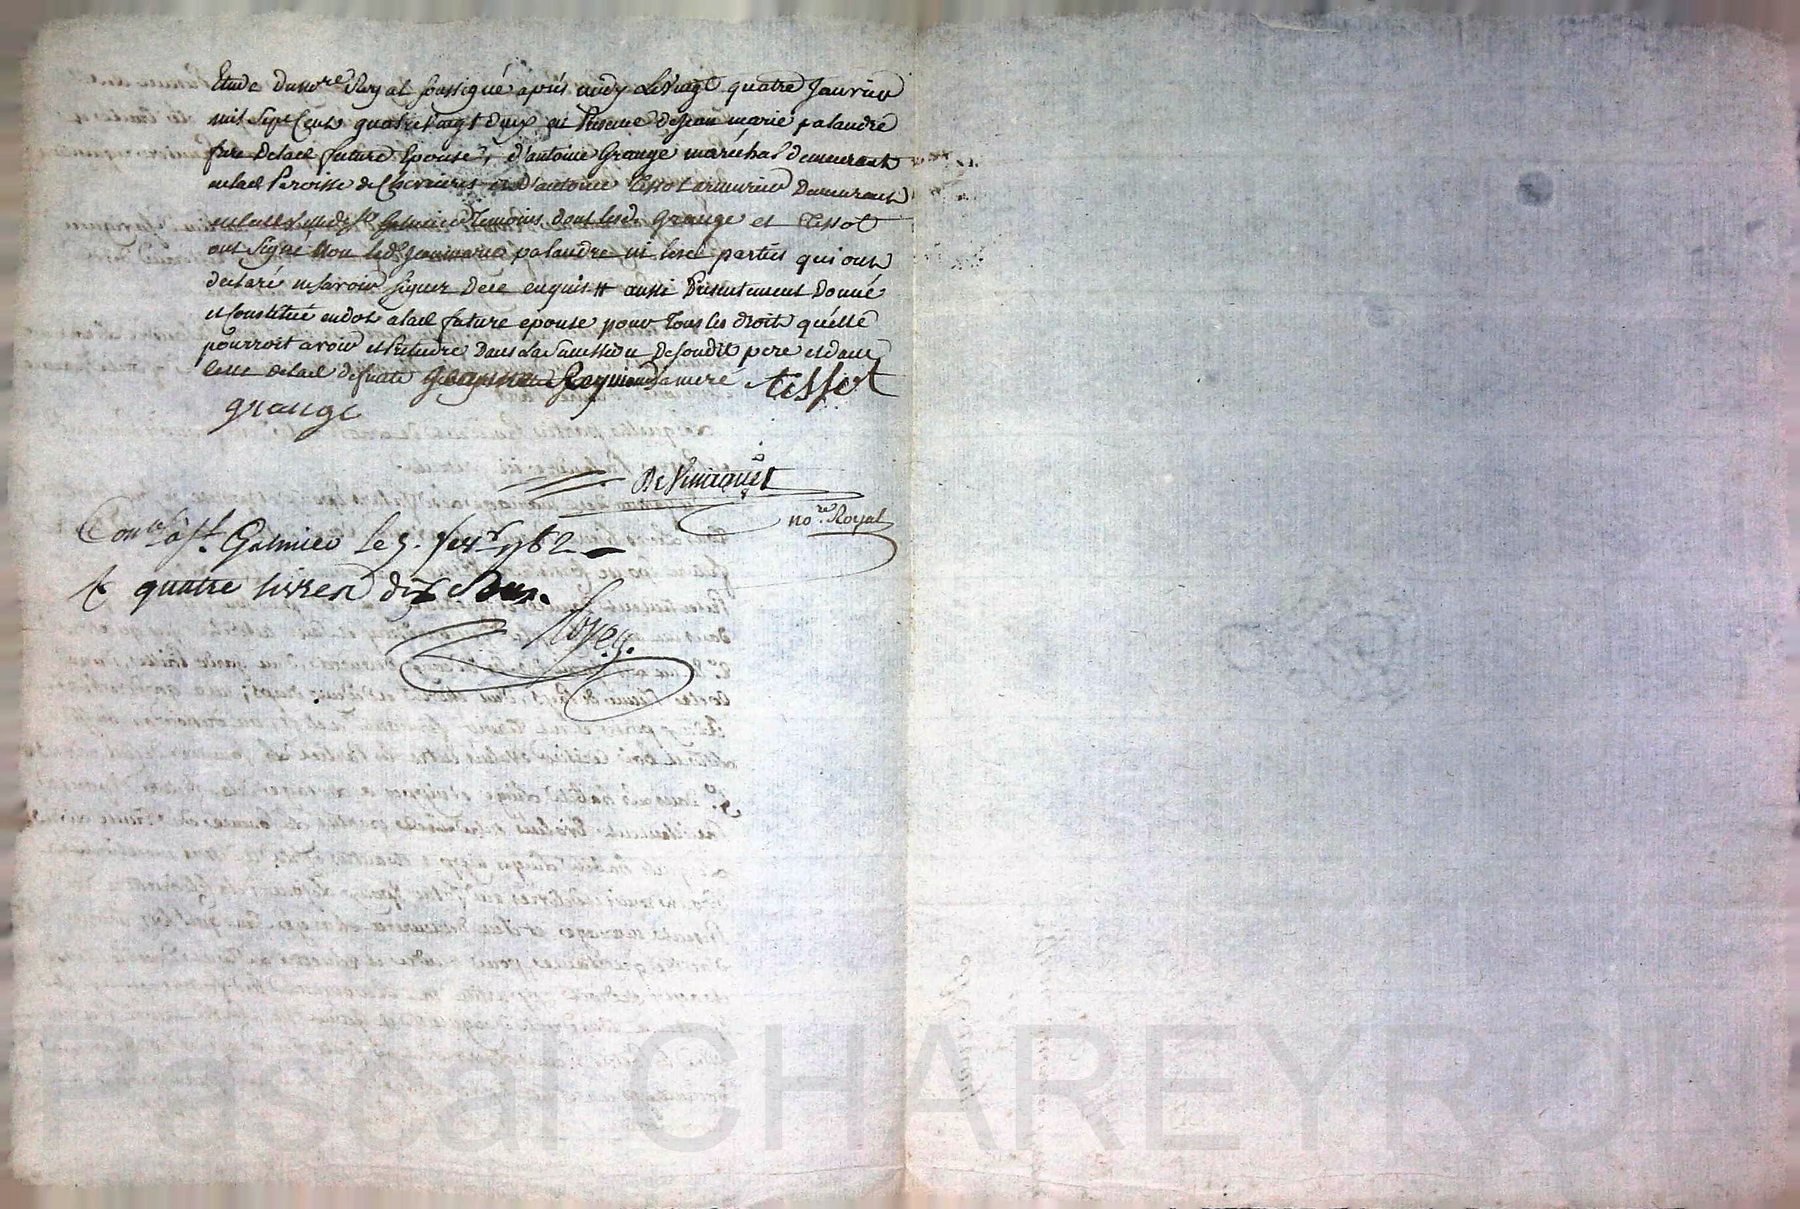 Etude du no.re Royal soussigné après midy le vingt quatre Janvier
mil sept cent quatre vingt deux en presence de Jean marie palandre
frere de lad. future Epouse, d'antoine Grange maréchal demeurant
en lad. Paroisse de Chevrieres et d'antoine Tissot armurier Demeurant
en cette ville de S.t Galmier Temoins dont lesd. Grange et Tissot
ont signé Non led. Jeanmarie palandre ni lesd. parties qui ont
declaré ne savoir signer de ce enquis # aussi Présentement Donné
et Constitué en dot a lad. future epouse pour Tous les droits quélle
pourroit avoir et Prétendre Dans La Succession de sondit pere et dans
celle de lad. defunte Raymond sa mere tissot
grange
no.re Royal
Con.lé à S.t Galmier le 5. fev.r 1782
R quatre livres dix sous.
Pascal CHAREYRON